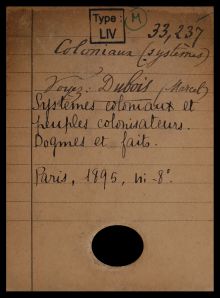 Type :
LIV
M
33,237
Coloniaux (systèmes)
Voyez : Dubois (Marcel)
Systèmes coloniaux et
peuples colonisateurs.
Dogmes et faits.
Paris, 1895, in-8°